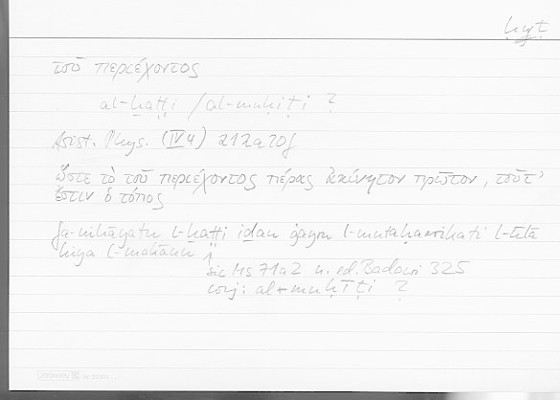 ḥyṭ
τοῦ περιέχοντος
al-ḫaṭṭi / al-muḥīṭi ?
Arist. Phys. (IV 4) 212a20f
ὥστε τὸ τοῦ περιέχοντος πέρας ἀκίνητον πρῶτον, τοῦτ'
ἔστιν ὁ τόπος
fa-nihāyatu l-ḫaṭṭi iḏan ġayru l-mutaḥarrikati l-ūlā
hiya l-makānu
sic Ms 71a2 u. ed. Badawi 325
conj: al-muḥīṭi ?